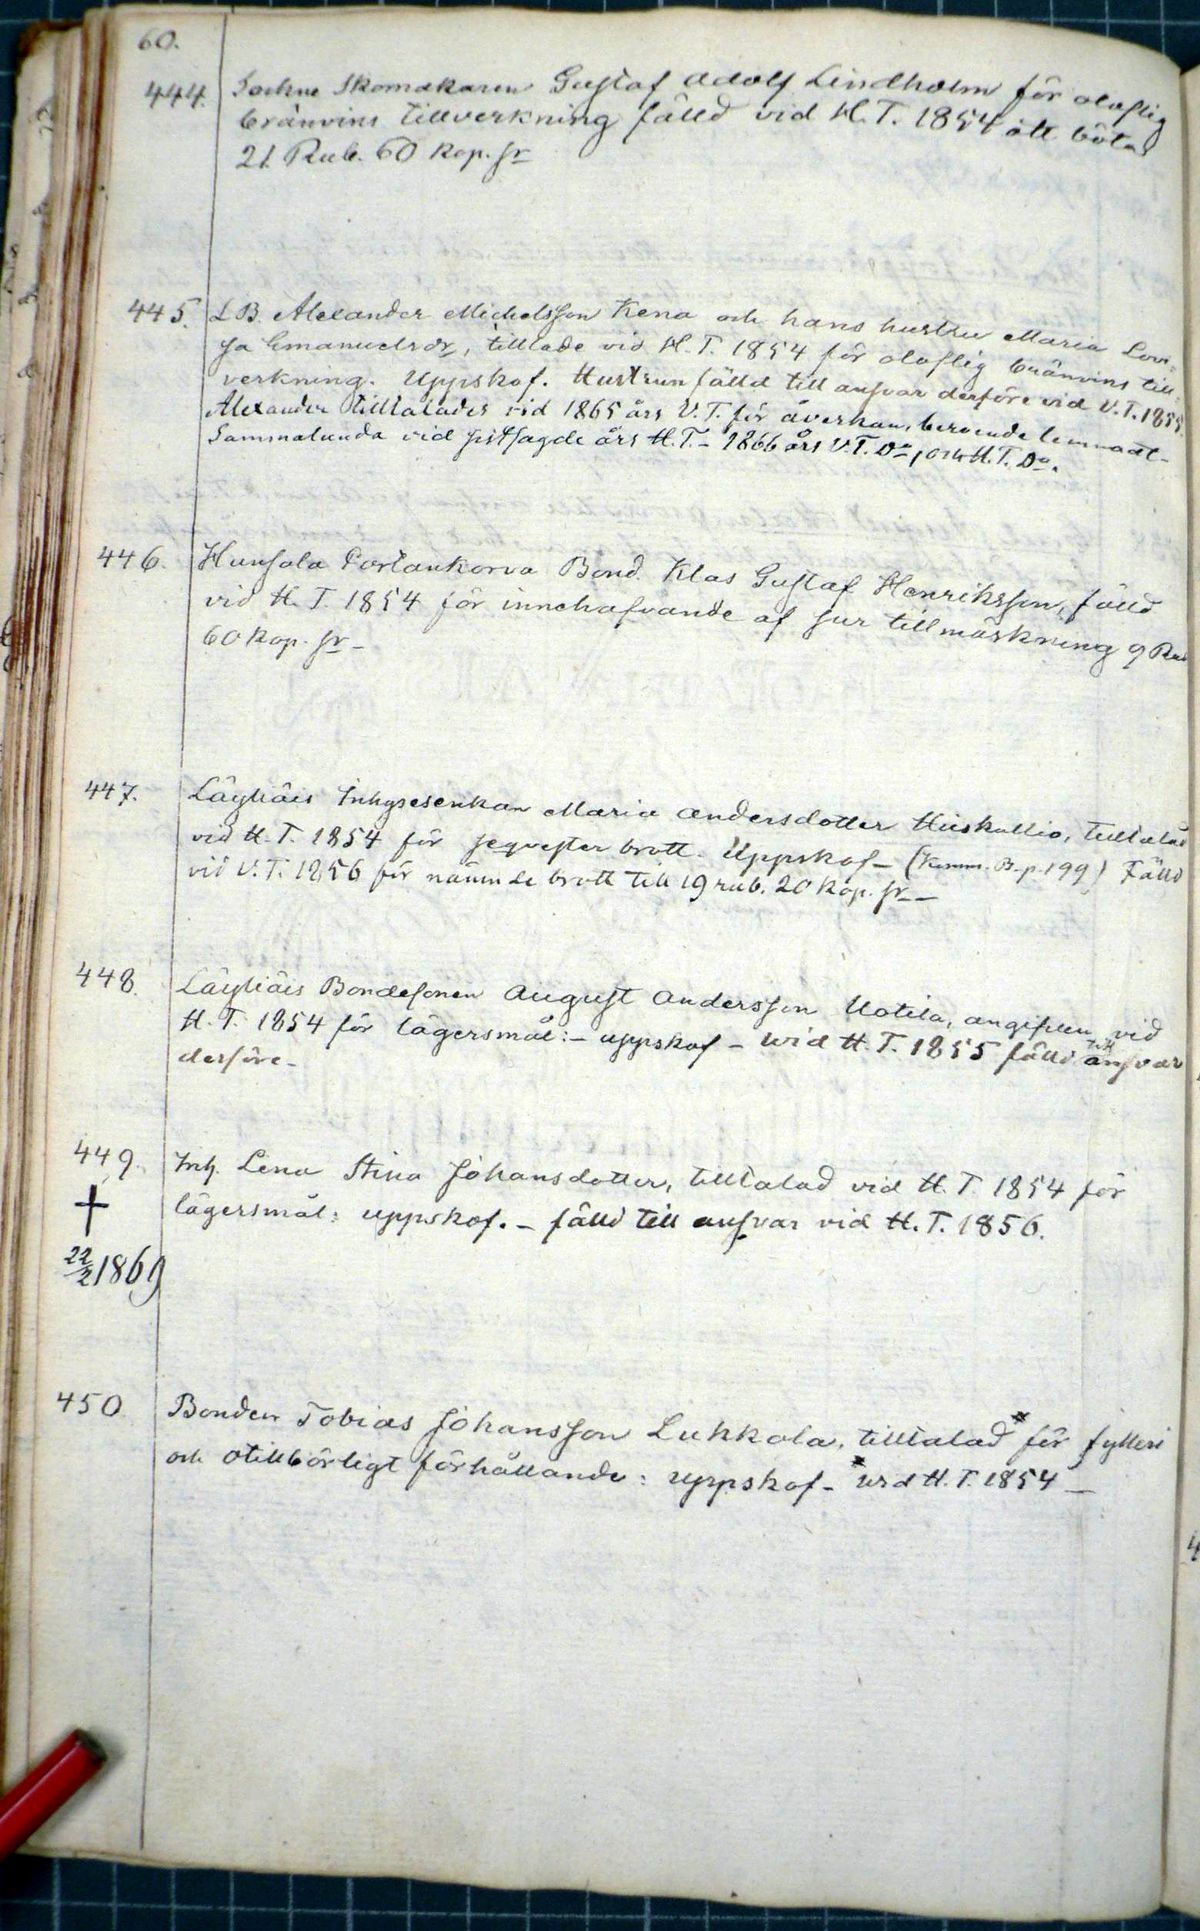 60.
444. Sockne Skomakaren Gustaf Adolf Lindholm för olaflig
bränvins tillverkning fälld vid H. T. 1854 att böta
21 Rub. 60 kop. sr
445. L B. Alexander Michelsson Kena och hans hustru Maria Lovi-
sa Emanuelsdr, tilltalade vid H. T. 1854 för olaflig bränvins till-
verkning. Uppskof. Hustrun fälld till ansvar derföre vid V. T. 1855.
Alexander tilltalades vid 1865 års V. T. för åverkan, beroende lemnadt-
Sammalunda vid sistsagde års H. T. - 1866 års V. T. Do, och H. T. Do.
446. Hunsala Portankorva Bond. Klas Gustaf Henriksson, fälld
vid H. T. 1854 för innehafvande af sur tillmäskning 9 Rub
60 kop. sr -
447. Läyliäis Inhysesenkan Maria Andersdotter Hiiskallio, tilltalad
vid H. T. 1854 för seqvester brott. Uppskof - (Komm. B. p. 199) Fälld
vid V. T. 1856 för nämnde brott till 19 rub. 20 kop. sr -
448. Läyliäis Bondesonen August Andersson Uotila, angifven vid
H. T. 1854 för lägersmål: - uppskof - vid H. T. 1855 fälld till ansvar
derföre -
449. Inh. Lena Stina Johansdotter, tilltalad vid H. T. 1854 för
lägersmål: uppskof. - fälld till ansvar vid H. T. 1856.
22/2 1869
450 Bonden Tobias Johansson Lukkala, tilltalad * för fylleri
och otillbörligt förhållande: uppskof - * vid H. T. 1854 -